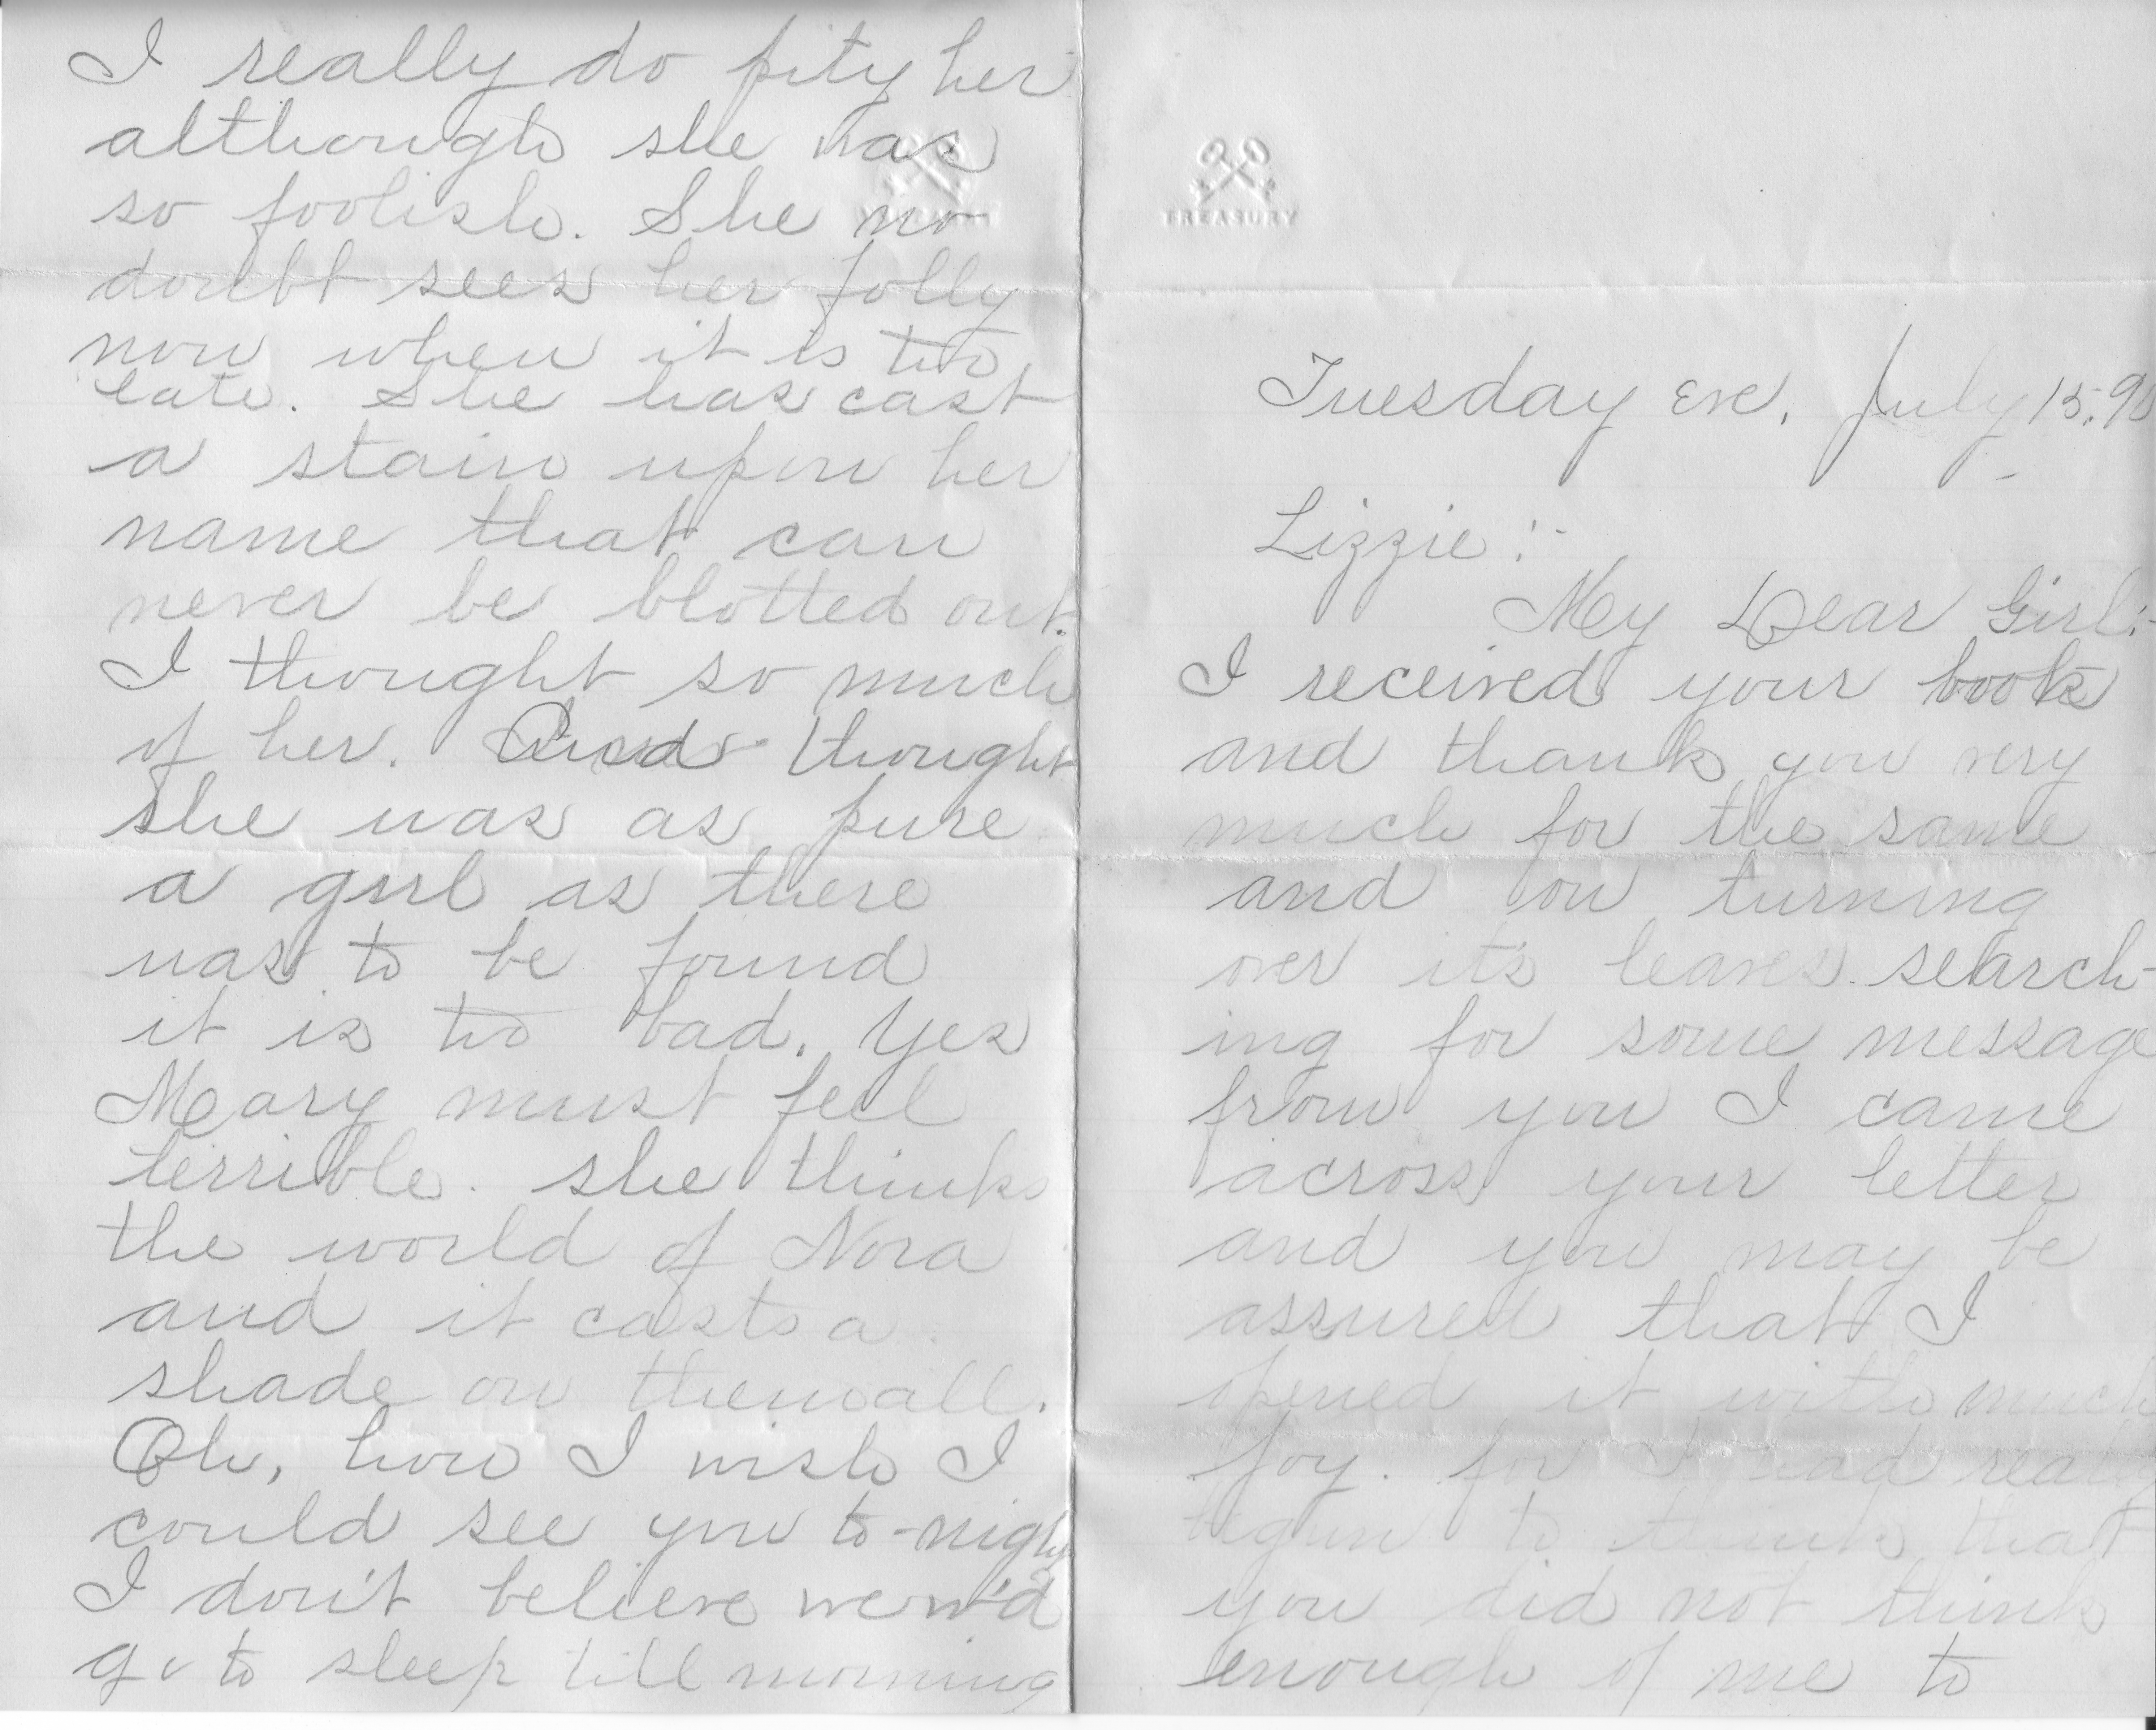 I really do pity her
although she was
so foolish. She no
doubt sees her folly
now when it is too
late. She has cast
a stain upon her
name that can
never be blotted out.
I thought so much
of her. And thought
she was as pure
a girl as there
was to be found
it is too bad. Yes
Mary must feel
terrible. she thinks
the world of Nora
and it casts a
shade on them all.
Oh, how I wish I
could see you to-night
I don't believe we w'd
go to sleep till morning
TREASURY
Tuesday Eve. July 15. 90
Lizzie :-
My Dear Girl:-
I received your book
and thank you very
much for the same
and on turning
over it's leaves. search-
ing for some message
from you I came
across your letter
and you may be
assured that I
opened it with much
joy. for I had really
begun to think that
you did not think
enough of me to